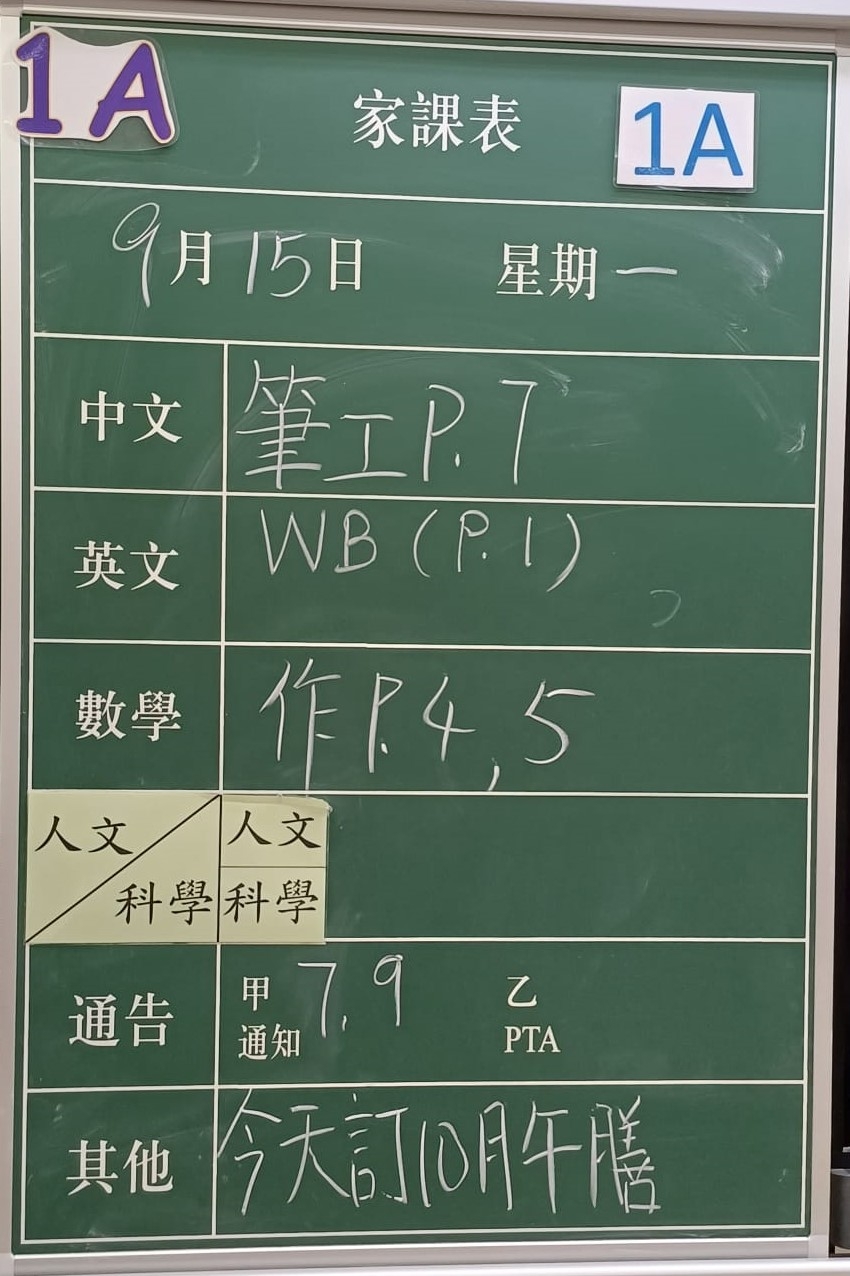 1A
家課表 1A
9月15日 星期一
中文 筆工P.7
英文 WB (P.1)
數學 作P.4,5
人文 科學 人文
科學
通告 甲 7.9 乙
通知 PTA
其他 今天訂10月午膳